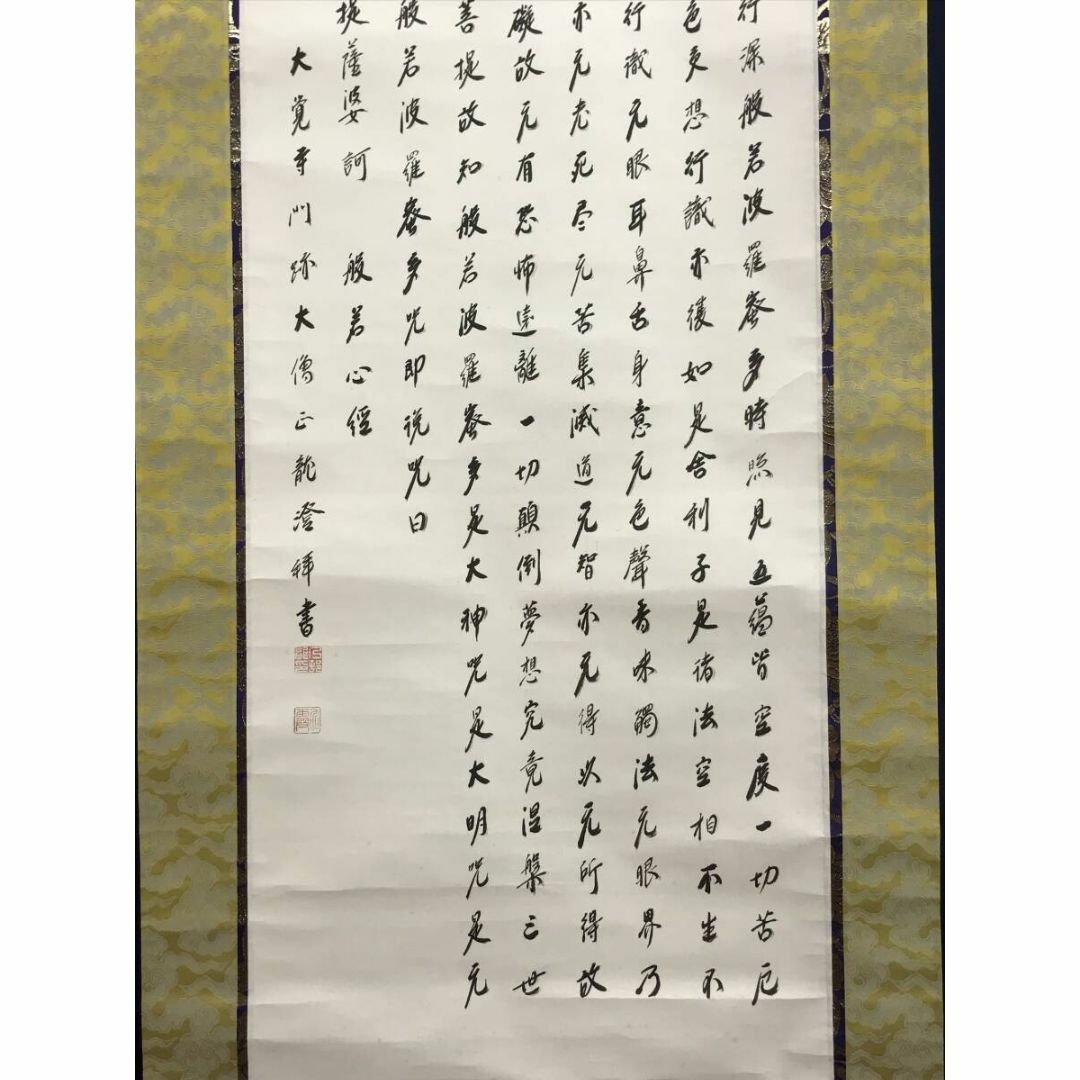 行深般若波羅蜜多時照見五蘊皆空度一切苦厄
色受想行識亦復如是舍利子是諸法空相不生不
行識无眼耳鼻舌身意无色聲香味觸法无眼界乃
亦无老死尽无苦集滅道无智亦无得以无所得故
礙故无有恐怖遠離一切顛倒夢想究竟涅槃三世
菩提故知般若波羅蜜多是大神咒是大明咒是无
般若波羅蜜多咒即说咒曰
提薩婆訶 般若心經
大覚寺門跡大僧正龍澄拜書